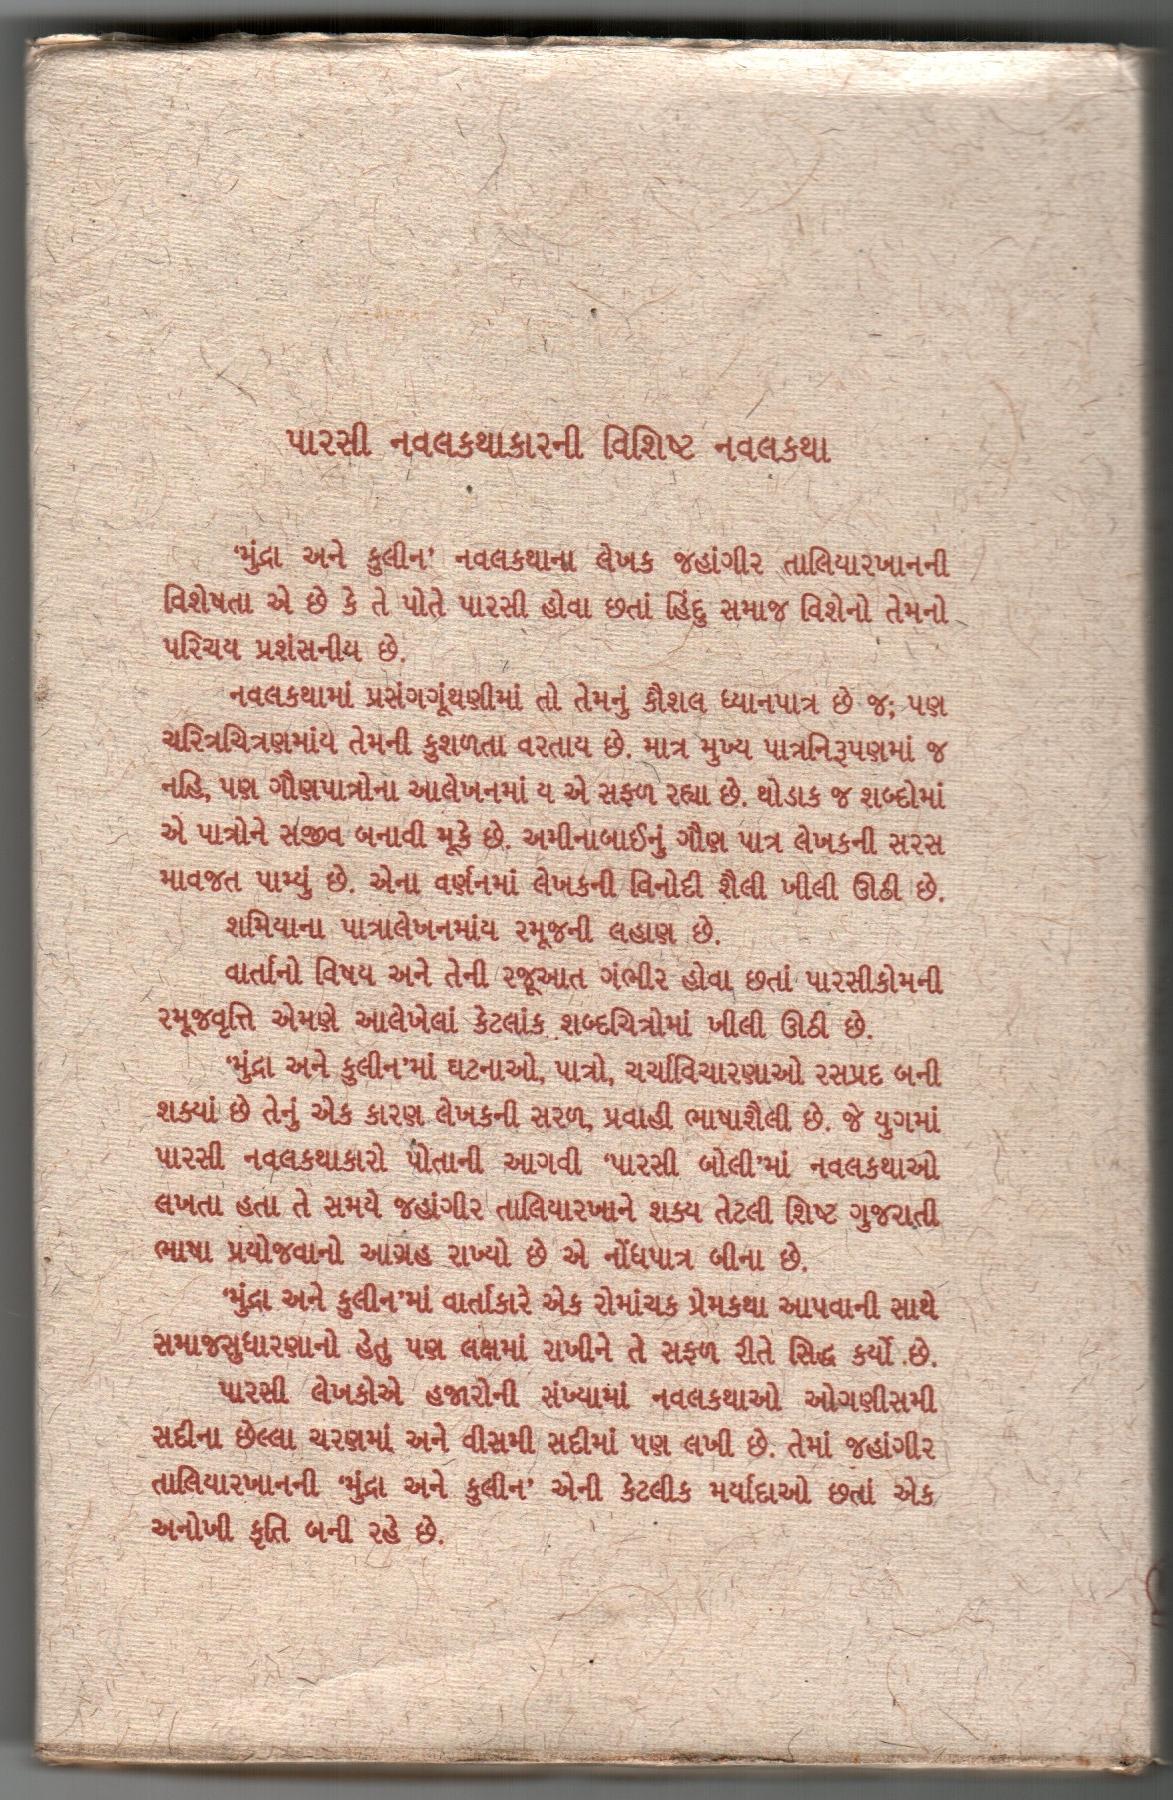 પારસી નવલકથાકારની વિશિષ્ટ નવલકથા
‘મુંદ્રા અને કુલીન’ નવલકથાના લેખક જહાંગીર તાલિયારખાનની
વિશેષતા એ છે કે તે પોતે પારસી હોવા છતાં હિંદુ સમાજ વિશેનો તેમનો
પરિચય પ્રશંસનીય છે.
નવલકથામાં પ્રસંગગૂંથણીમાં તો તેમનું કૌશલ ધ્યાનપાત્ર છે જ; પણ
ચરિત્રચિત્રણમાંય તેમની કુશળતા વરતાય છે. માત્ર મુખ્ય પાત્રનિરૂપણમાં જ
નહિ, પણ ગૌણપાત્રોના આલેખનમાં ય એ સફળ રહ્યા છે. થોડાક જ શબ્દોમાં
એ પાત્રોને સજીવ બનાવી મૂકે છે. અમીનાબાઈનું ગૌણ પાત્ર લેખકની સરસ
માવજત પામ્યું છે. એના વર્ણનમાં લેખકની વિનોદી શૈલી ખીલી ઊઠી છે.
શમિયાના પાત્રાલેખનમાંય રમૂજની લહાણ છે.
વાર્તાનો વિષય અને તેની રજૂઆત ગંભીર હોવા છતાં પારસીકોમની
રમૂજવૃત્તિ એમણે આલેખેલાં કેટલાંક શબ્દચિત્રોમાં ખીલી ઊઠી છે.
‘મુંદ્રા અને કુલીન’માં ઘટનાઓ, પાત્રો, ચર્ચાવિચારણાઓ રસપ્રદ બની
શક્યાં છે તેનું એક કારણ લેખકની સરળ, પ્રવાહી ભાષાશૈલી છે. જે યુગમાં
પારસી નવલકથાકારો પોતાની આગવી ‘પારસી બોલી’માં નવલકથાઓ
લખતા હતા તે સમયે જહાંગીર તાલિયારખાને શક્ય તેટલી શિષ્ટ ગુજરાતી
ભાષા પ્રયોજવાનો આગ્રહ રાખ્યો છે એ નોંધપાત્ર બીના છે.
‘મુંદ્રા અને કુલીન’માં વાર્તાકારે એક રોમાંચક પ્રેમકથા આપવાની સાથે
સમાજસુધારણાનો હેતુ પણ લક્ષમાં રાખીને તે સફળ રીતે સિદ્ધ કર્યો છે.
પારસી લેખકોએ હજારોની સંખ્યામાં નવલકથાઓ ઓગણીસમી
સદીના છેલ્લા ચરણમાં અને વીસમી સદીમાં પણ લખી છે. તેમાં જહાંગીર
તાલિયારખાનની ‘મુંદ્રા અને કુલીન’ એની કેટલીક મર્યાદાઓ છતાં એક
અનોખી કૃતિ બની રહે છે.